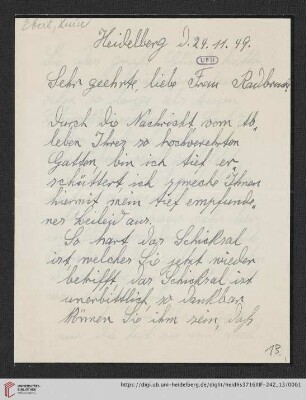 Eberl, Luise
Heidelberg d. 24. 11. 49.
UB H
Sehr geehrte, liebe Frau Radbruch,
Durch die Nachricht vom Ab-
leben Ihres so hochverehrten
Gatten, bin ich tief er-
schüttert, ich spreche Ihnen
hiermit mein tief empfunde-
nes Beileid aus.
So hart das Schicksal
ist, welches Sie jetzt wieder
betrifft, das Schicksal ist
unerbittlich, so dankbar
können Sie ihm sein, daß
13.
UNIVERSITÄTS-
BIBLIOTHEK
HEIDELBERG
https://digi.ub.uni-heidelberg.de/diglit/heidhs3716IIIF-242_13/0001